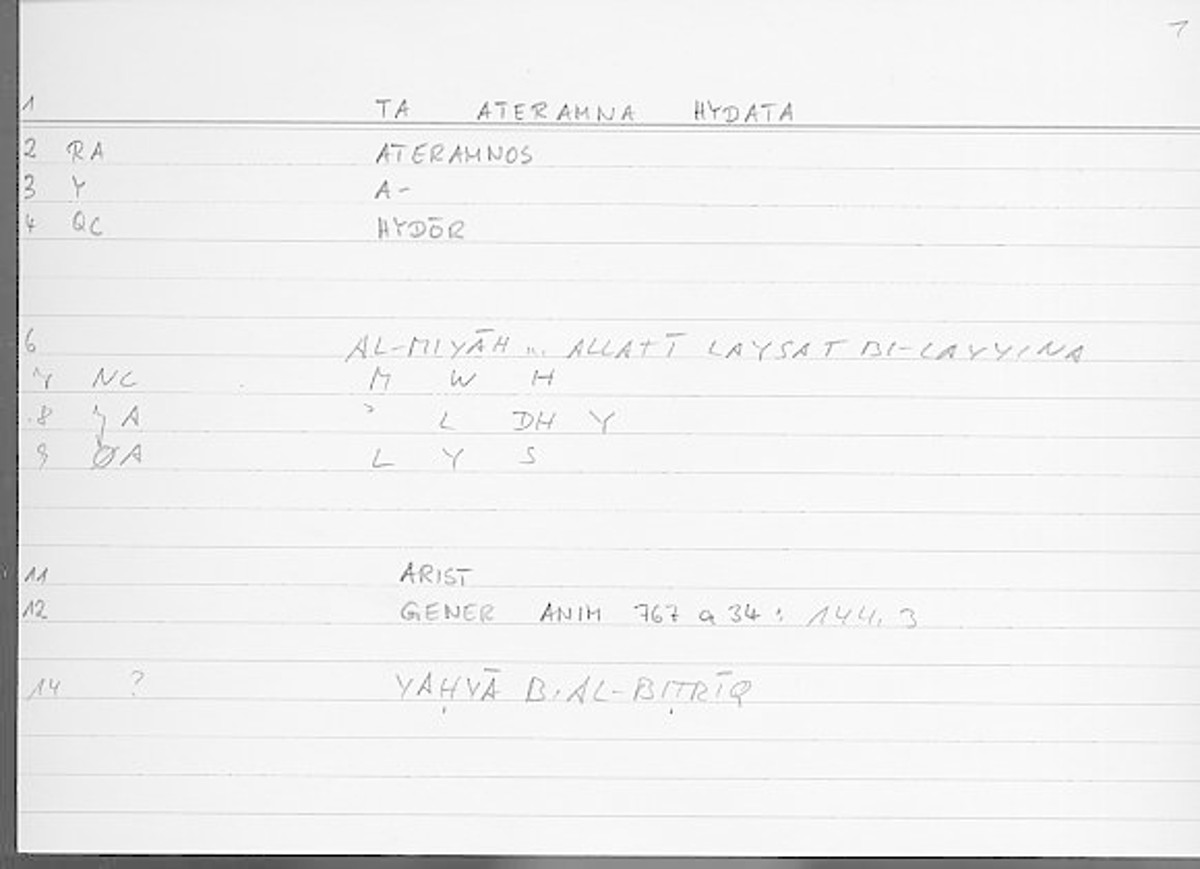 1
1 TA ATERAMNA HYDATA
2 RA ATERAMNOS
3 Y A-
4 QC HYDŌR
6 AL-MIYĀH ... ALLATĪ LAYSAT BI-LAYYINA
7 NC M W H
8 YA ʾ L DH Y
9 ØA L Y S
11 ARIST
12 GENER ANIM 767 a 34 : 144.3
14 ? YAḤYĀ B. AL-BIṬRĪQ